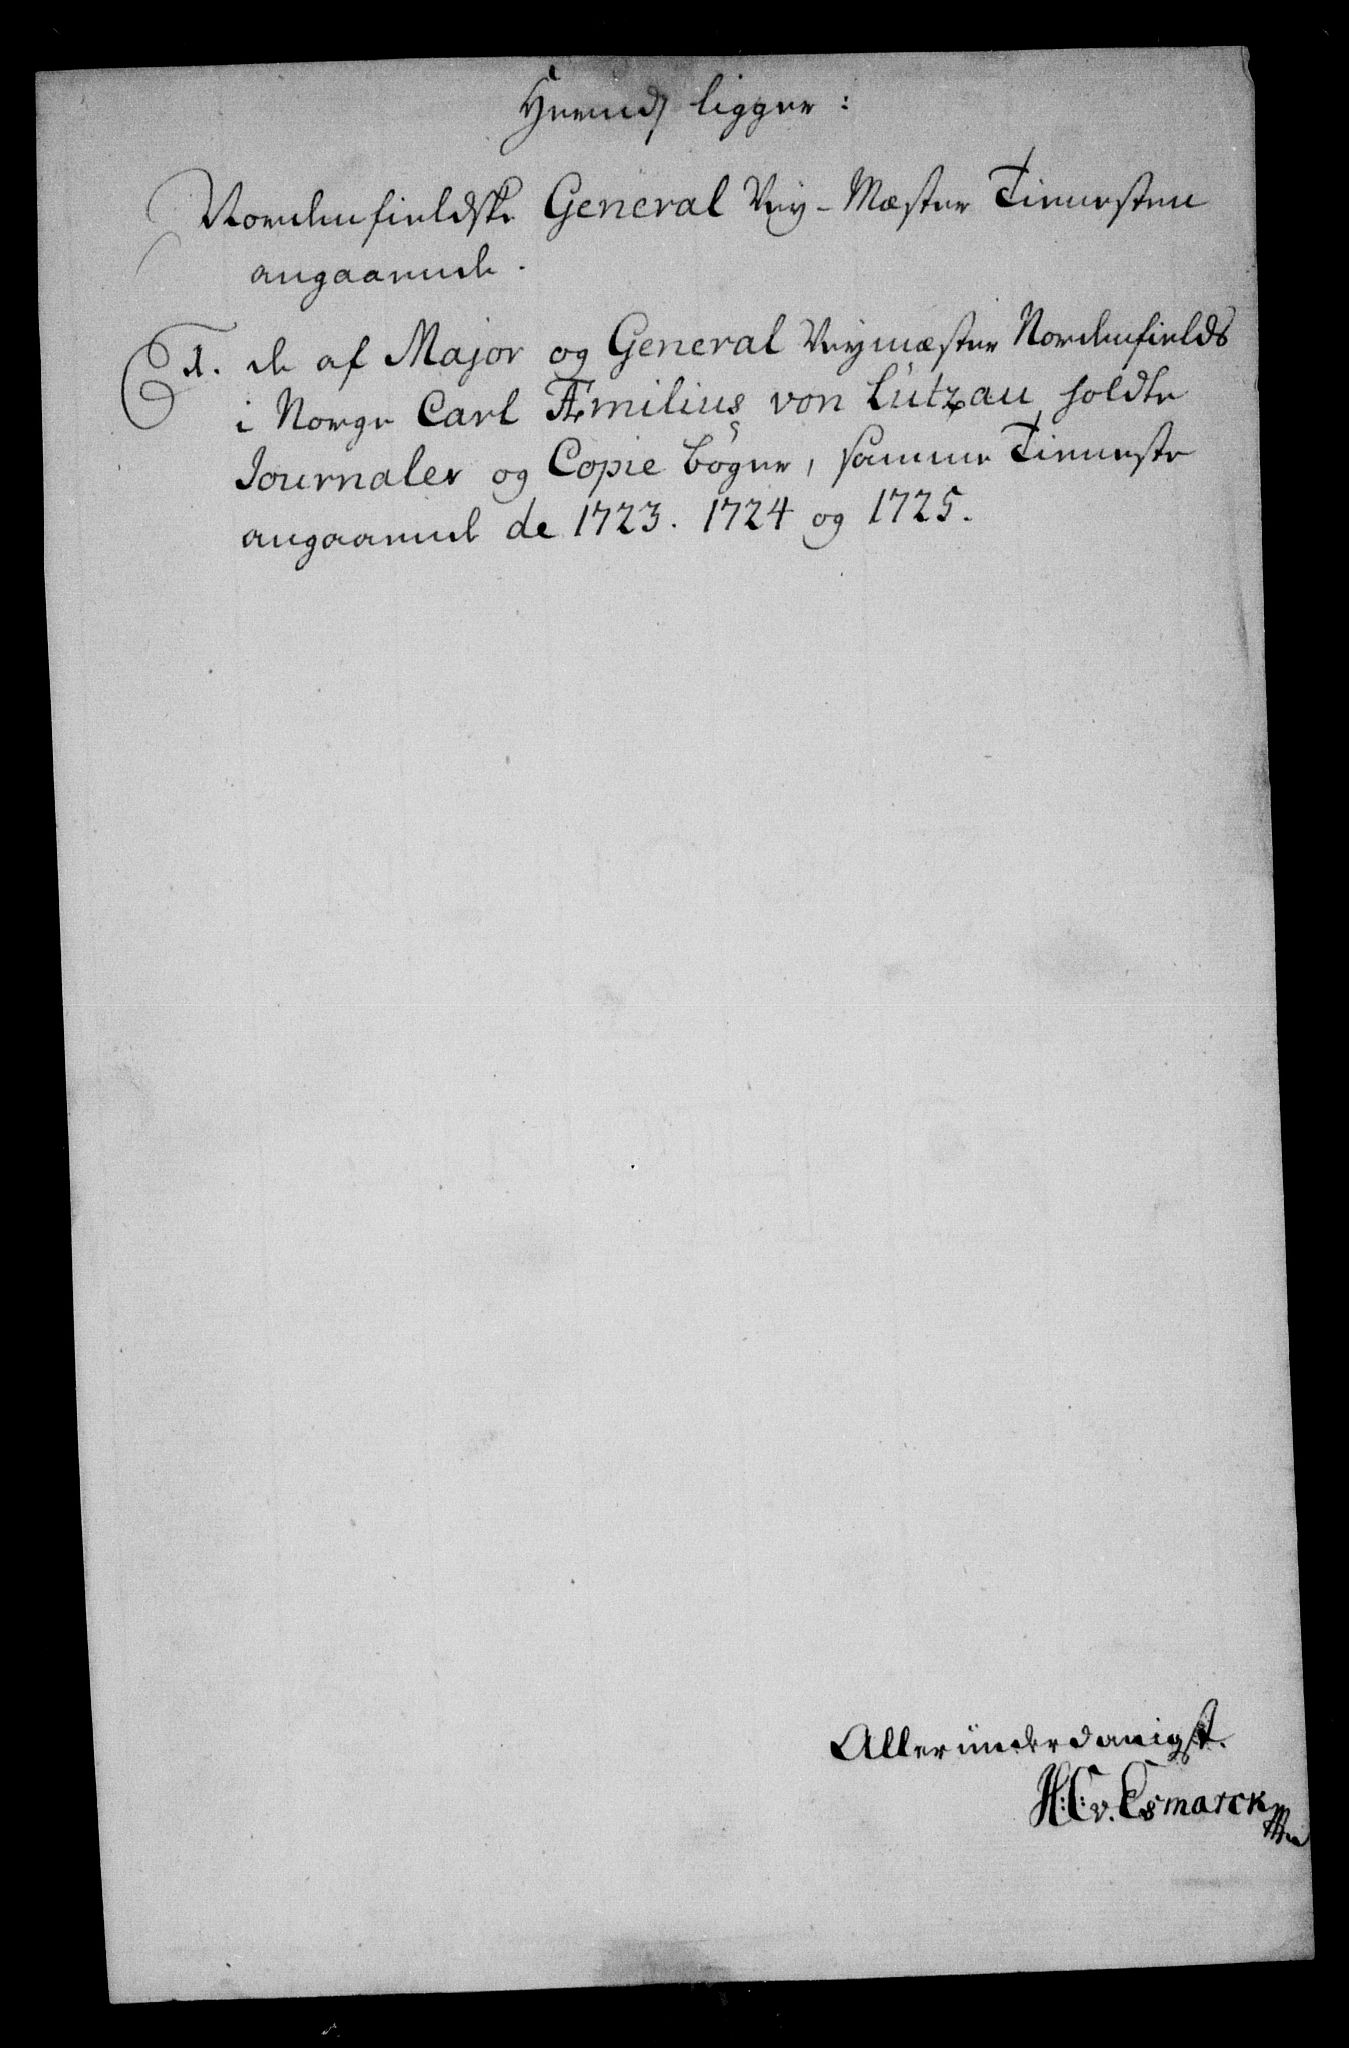 Herudj ligger:
Nordenfieldske General Vey-Mester Tienesten
angaaende.
1. de af Major og General Veymester Nordenfields
i Norge Carl Æmilius von Lützau, holdte
Journaler og Copie bøger, samme Tieneste
angaaende de 1723. 1724 og 1725.
Alleründerdanigst.
H:C: v. Esmarck